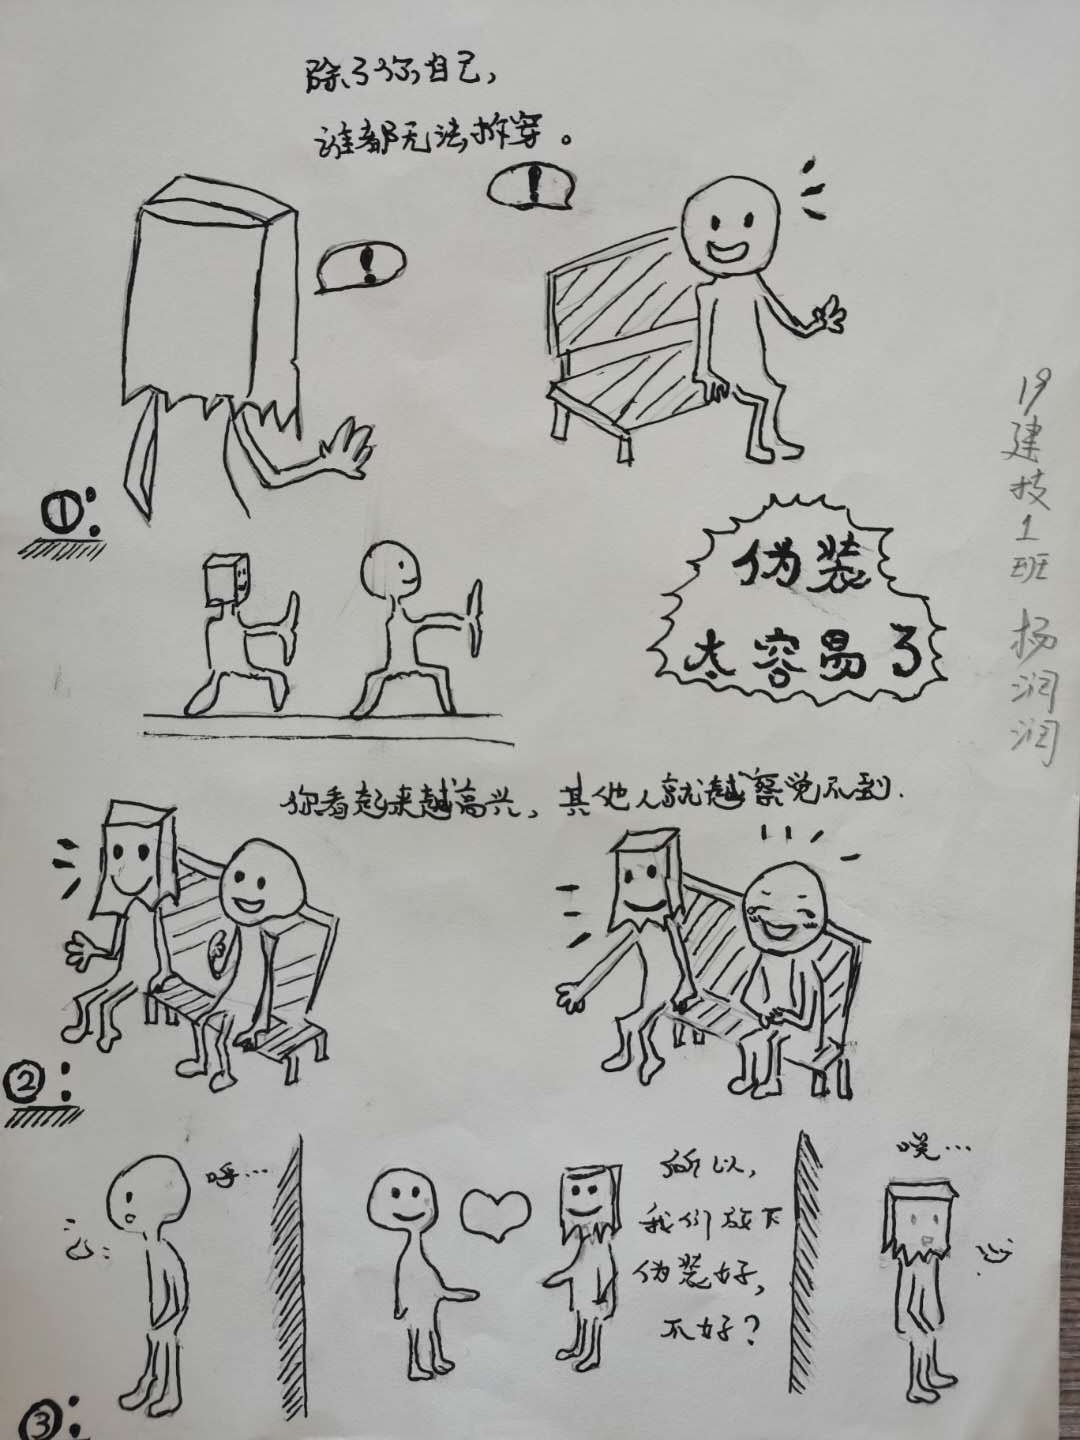 除了你自己,
谁都无法拆穿。
!
!
①:
伪装
太容易了
19建技1班 杨润润
你看起来越高兴,其他人就越察觉不到.
②:
呼…
所以,
我们放下
伪装好,
不好?
③: